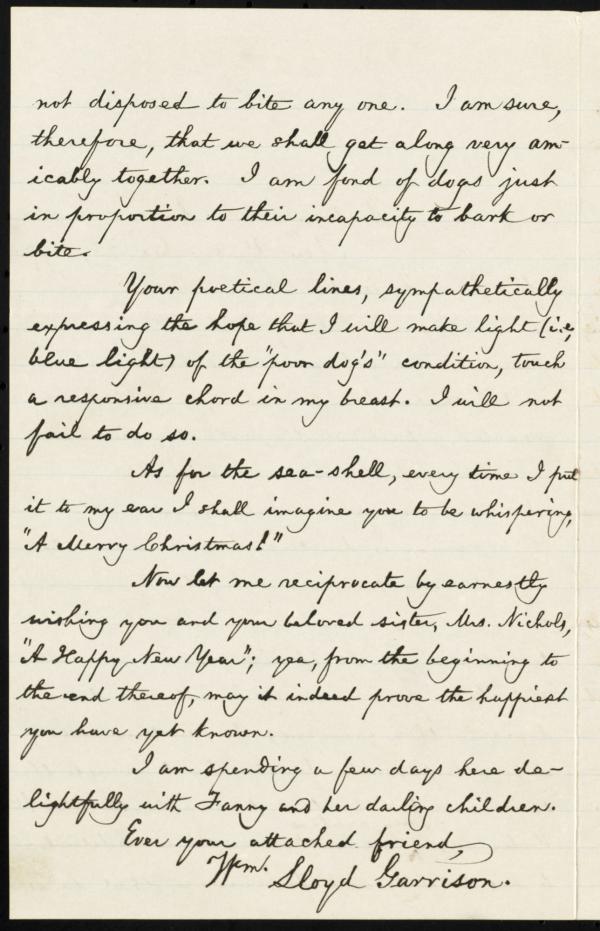 not disposed to bite any one. I am sure,
therefore, that we shall get along very am-
icably together. I am fond of dogs just
in proportion to their incapacity to bark or
bite.
Your poetical lines, sympathetically
expressing the hope that I will make light (i.e,
blue light) of the "poor dog's" condition, touch
a responsive chord in my breast. I will not
fail to do so.
As for the sea-shell, every time I put
it to my ear I shall imagine you to be whispering,
"A Merry Christmas!"
Now let me reciprocate by earnestly
wishing you and your beloved sister, Mrs. Nichols,
"A Happy New Year"; yea, from the beginning to
the end thereof, may it indeed prove the happiest
you have yet known.
I am spending a few days here de-
lightfully with Fanny and her darling children.
Ever your attached friend,
Wm. Lloyd Garrison.